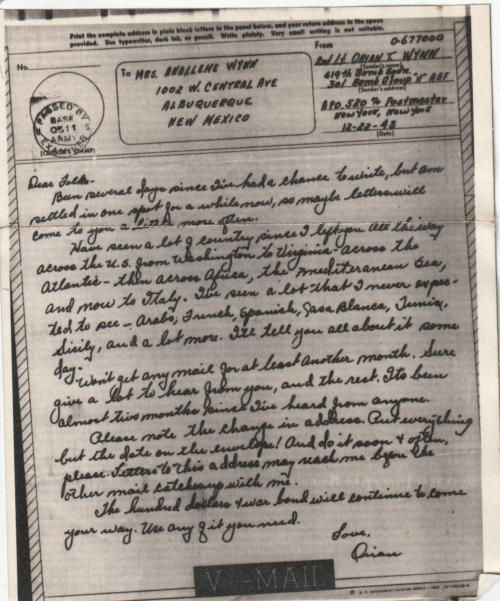 Print the complete address in plain block letters in the panel below, and your return address in the space
provided. Use typewriter, dark ink, or pencil. Write plainly. Very small writing is not suitable.
No.
PASSED BY
BASE
0511
ARMY
EXAMINER
(CENSOR'S STAMP)
To MRS. ANALLENE WYNN
1002 W. CENTRAL AVE
ALBUQUERQUE
NEW MEXICO
From O-677000
2nd Lt ORIAN T. WYNN
(Sender's name)
419th Bomb Sqdn.
301 Bomb Group "H" AAF
(Sender's address)
APO 520 % Postmaster
NEW YORK, NEW YORK
12-22-43
(Date)
Dear Folks-
Been several days since I've had a chance to write, but am
settled in one spot for a while now, so maybe letters will
come to you a little more often.
Have seen a lot of country since I left you. All the way
across the U.S. from Washington to Virginia - across the
Atlantic - then across Africa, the Mediteranean Sea,
and now to Italy. I've seen a lot that I never expec-
ted to see - Arabs, French, Spanish, Casa Blanca, Tunis,
Sicily, and a lot more. I'll tell you all about it some
day.
Won't get any mail for at least another month. Sure
give a lot to hear from you, and the rest. It's been
almost two months since I've heard from anyone.
Please note the change in address. Put everything
but the date on the envelope! And do it soon & often,
please. Letters to this address may reach me before the
other mail catches up with me.
The hundred dollars & war bond will continue to come
your way. Use any of it you need.
Love,
Orian
V---MAIL